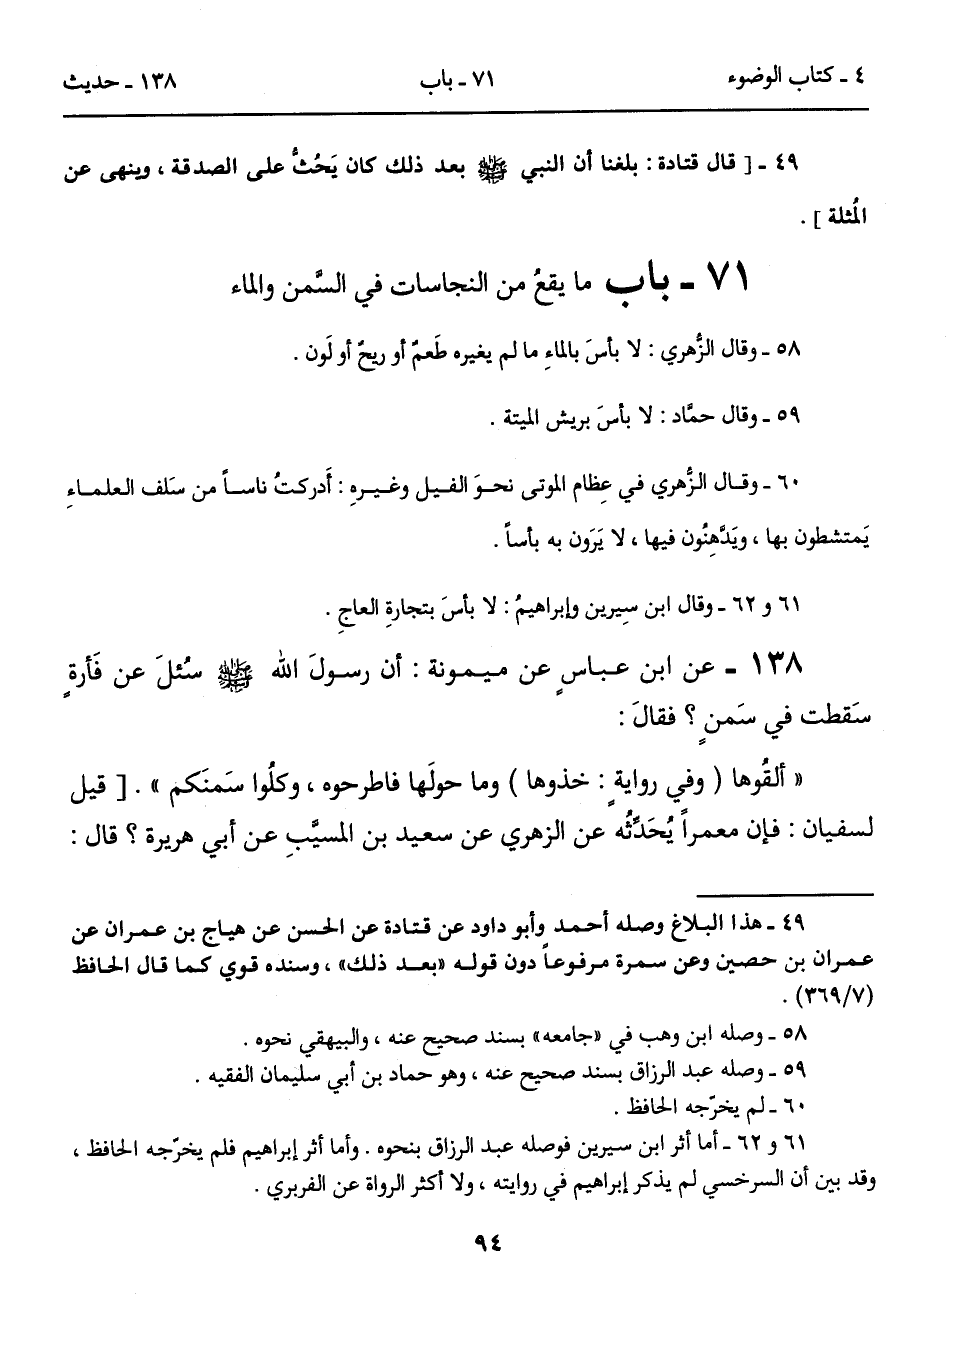 ٤ ـ كتاب الوضوء
٧١ ـ باب
١٣٨ ـ حديث
٤٩ ـ [ قال قتادة : بلغنا أن النبي ﷺ بعد ذلك كان يَحُثُّ على الصدقة ، وينهى عن
المُثلة ] .
٧١ ـ باب ما يقعُ من النجاسات في السَّمن والماء
٥٨ ـ وقال الزُّهري : لا بأسَ بالماءِ ما لم يغيره طَعمٌ أو ريحٌ أو لَون .
٥٩ ـ وقال حمَّاد : لا بأسَ بريش الميتة .
٦٠ ـ وقال الزُّهري في عِظام الموتى نحوَ الفيل وغيرهِ : أَدركتُ ناساً من سَلف العلماءِ
يَمتشطون بها ، ويَدَّهِنُون فيها ، لا يَرَون به بأساً .
٦١ و ٦٢ ـ وقال ابن سِيرين وإبراهيمُ : لا بأسَ بتجارةِ العاجِ .
١٣٨ ـ عن ابن عباسٍ عن ميمونة : أن رسولَ الله ﷺ سُئلَ عن فَأرةٍ
سَقطت في سَمنٍ ؟ فقالَ :
« ألقُوها ( وفي روايةٍ : خذوها ) وما حولَها فاطرحوه ، وكلُوا سَمنَكم » . [ قيل
لسفيان : فإن معمراً يُحَدِّثُه عن الزهري عن سعيد بن المسيَّبِ عن أبي هريرة ؟ قال :
٤٩ ـ هذا البلاغ وصله أحمد وأبو داود عن قتادة عن الحسن عن هياج بن عمران عن
عمران بن حصين وعن سمرة مرفوعاً دون قوله «بعد ذلك» ، وسنده قوي كما قال الحافظ
(٣٦٩/٧) .
٥٨ ـ وصله ابن وهب في «جامعه» بسند صحيح عنه ، والبيهقي نحوه .
٥٩ ـ وصله عبد الرزاق بسند صحيح عنه ، وهو حماد بن أبي سليمان الفقيه .
٦٠ ـ لم يخرّجه الحافظ .
٦١ و ٦٢ ـ أما أثر ابن سيرين فوصله عبد الرزاق بنحوه . وأما أثر إبراهيم فلم يخرّجه الحافظ ،
وقد بين أن السرخسي لم يذكر إبراهيم في روايته ، ولا أكثر الرواة عن الفربري .
٩٤